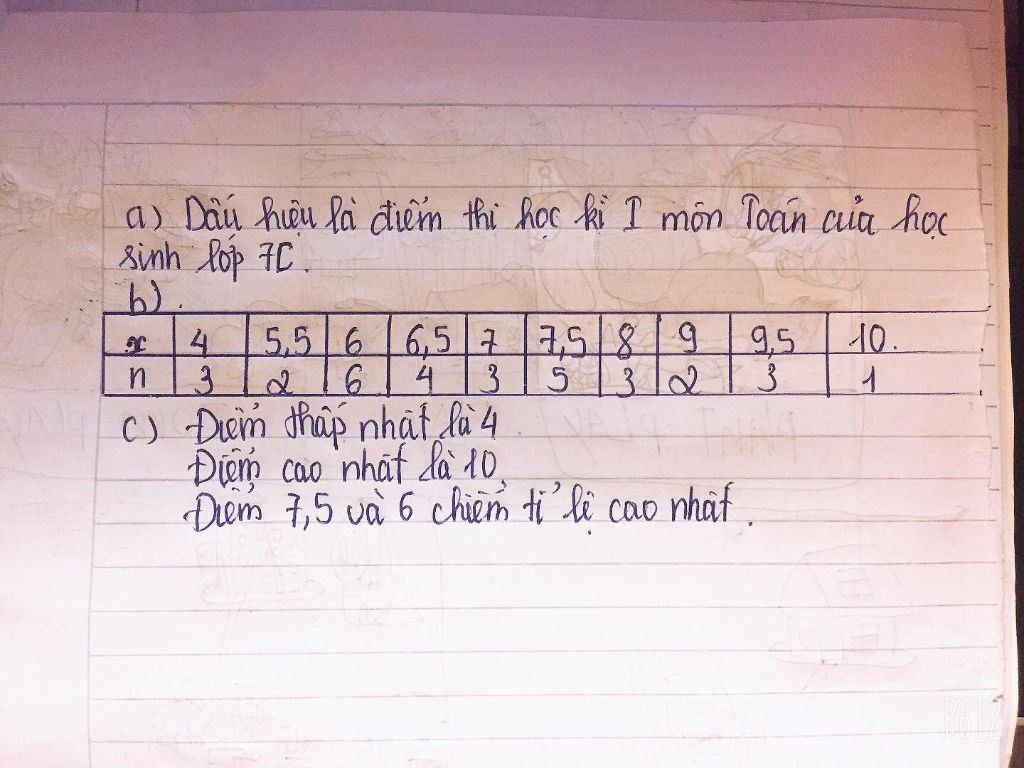 a) Dấu hiệu là điểm thi học kì I môn Toán của học
sinh lớp 7C.
b).
x 4 5,5 6 6,5 7 7,5 8 9 9,5 10.
n 3 2 6 4 3 5 3 2 3 1
c) Điểm thấp nhất là 4
Điểm cao nhất là 10.
Điểm 7,5 và 6 chiếm tỉ lệ cao nhất.
B612